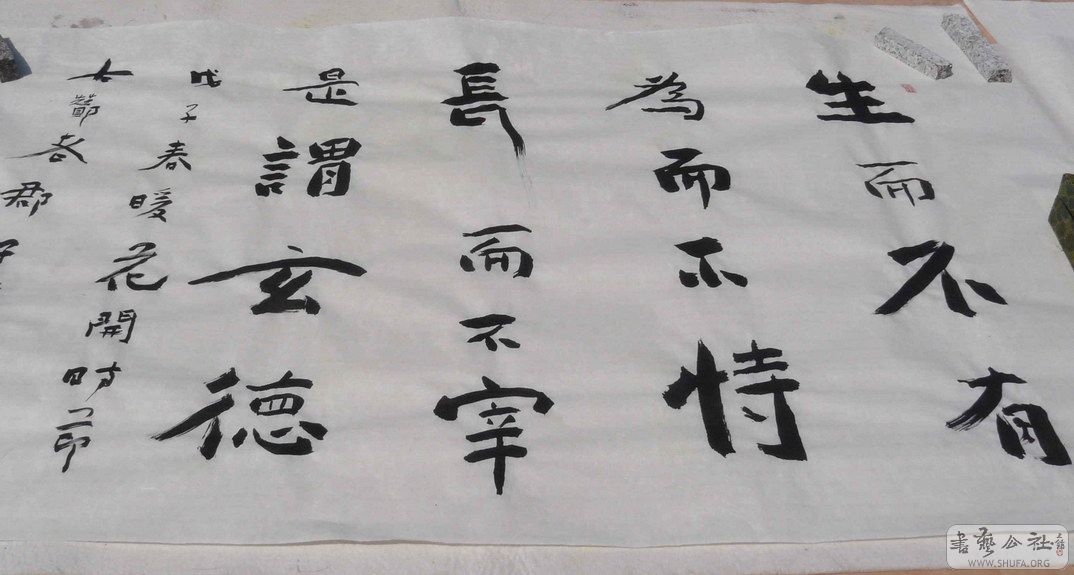 生而不有
為而不恃
長而不宰
是謂玄德
戊子春暖花開時節
書藝公社
WWW.SHUFA.ORG